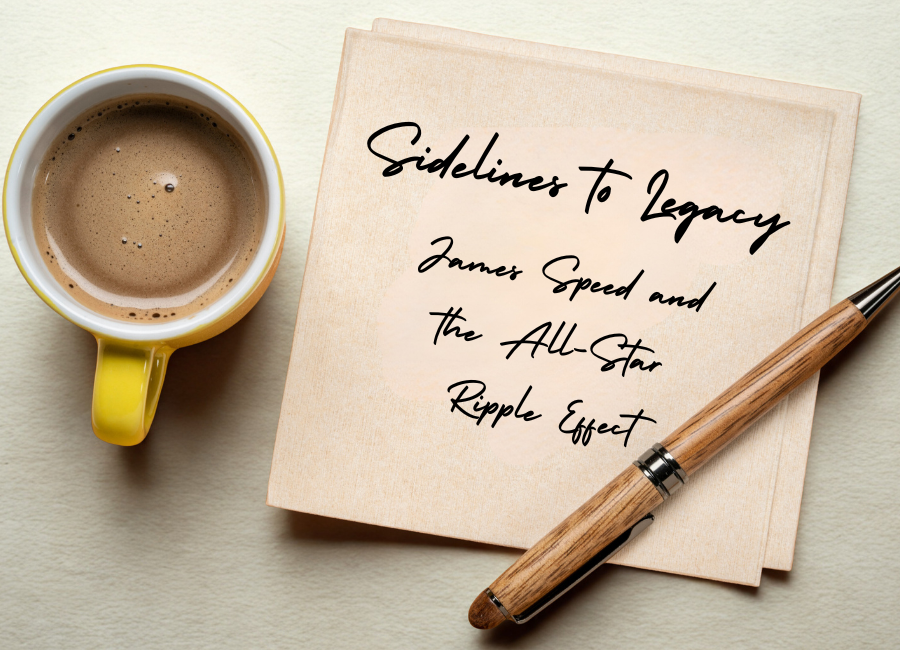 Sidelines to Legacy
James Speed and
the All-Star
Ripple Effect